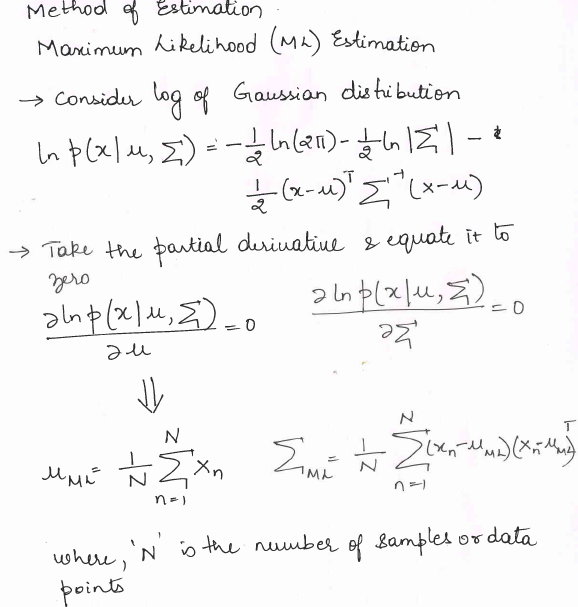 Method of Estimation.
Maximum Likelihood (ML) Estimation
→ Consider log of Gaussian distribution
ln p(x|μ, Σ) = -1/2 ln(2π) - 1/2 ln |Σ| -
1/2 (x-μ)^T Σ^-1 (x-μ)
→ Take the partial derivative & equate it to
zero
∂ ln p(x|μ, Σ) / ∂μ = 0    ∂ ln p(x|μ, Σ) / ∂Σ = 0
⇓
μ_ML = 1/N Σ_{n=1}^{N} x_n    Σ_ML = 1/N Σ_{n=1}^{N} (x_n-μ_ML)(x_n-μ_ML)^T
where, 'N' is the number of samples or data
points